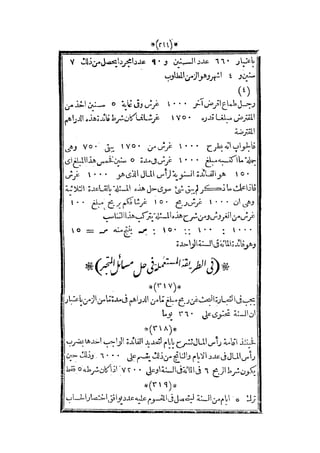 *(٢١٤)*
باعتبار ٦٦٠ عدد السنين و ٩٠ عدد المجرد يحصل من ذلك ٧
سنين و ٤ اشهر وهو الزمن المطلوب
(٤)
رجل طماع اقرض آخر ١٠٠٠ غرش وفى غاية ٥ سنين اخذ من
المقترض مبلغا قدره ١٧٥٠ غرشا فما كان شرط فائدة هذه الدراهم
المقترضة
فالجواب انه بطرح ١٠٠٠ غرش من ١٧٥٠ يبقى ٧٥٠ وهى
جملة ما اكتسبه مبلغ ١٠٠٠ غرش فى مدة ٥ سنين فخمس هذا المبلغ اى
١٥٠ هو الفائدة السنوية لرأس المال الذى هو ١٠٠٠ غرش
فاذا علمت ما ذكر لم يبق شئ سوى حل هذه المسئلة بالقاعدة الثلاثية
وهى ان ١٠٠٠ غرش ربح ١٥٠ غرشا فكم يربح مبلغ ١٠٠
غرش من الغروش ومن شرح هذه المسئلة يتركب هذا التناسب
١٠٠٠ : ١٠٠ :: ١٥٠ : س ينتج منه س = ١٥
وهو فائدة المائة فى السنة الواحدة
*(فى الطريقة المستعملة فى حل مسائل التجر)*
*(٣١٧)*
يجب فى التجارة البحث عن ربح مبلغ ما من الدراهم فى مدة ما من الزمن باعتبار
ان السنة تحتوى على ٣٦٠ يوما
*(٣١٨)*
فحينئذ اقامة رأس المال تشرح بايام لتحديد الفائدة الواجب اخذها بضرب
رأس المال فى عدد الايام والناتج من ذلك يقسم على ٦٠٠٠ وذلك حين
يكون شرط الربح ٦ فى المائة فى السنة او على ٧٢٠٠ اذا كان شرطه ٥ فقط
*(٣١٩)*
ترك ٥ ايام من السنة ليتحصل فى المقسوم عليه عدد يوافق اختصار الحساب